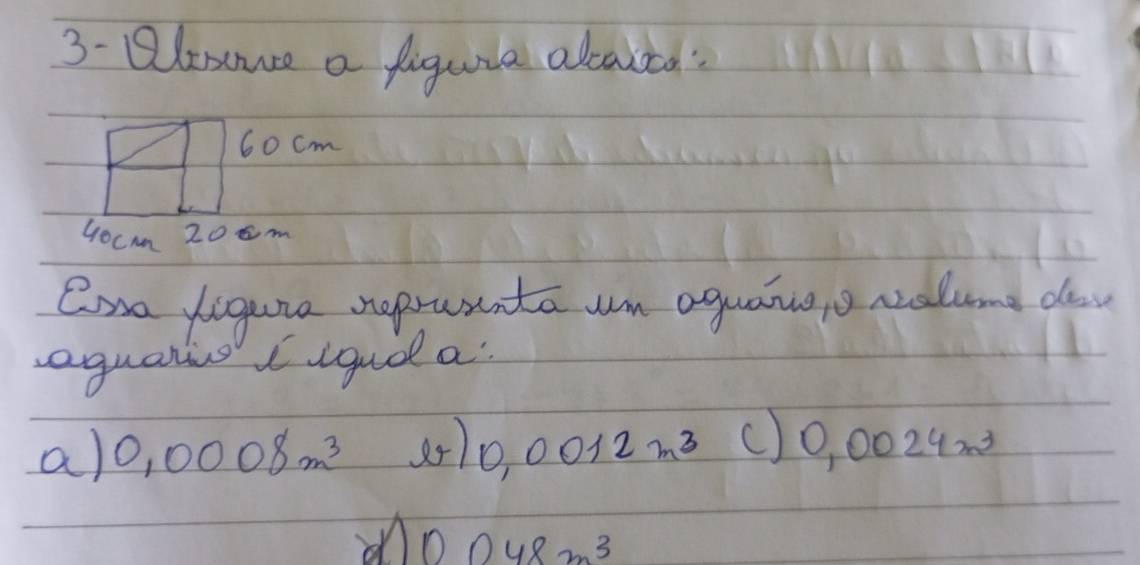 3- Observe a figura abaixo:
60 cm
40cm 20cm
Essa figura representa um aquário, o volume desse
aquario é igual a:
a) 0,0008m³ b) 0,0012m³ c) 0,0024m³
d) 0,048m³